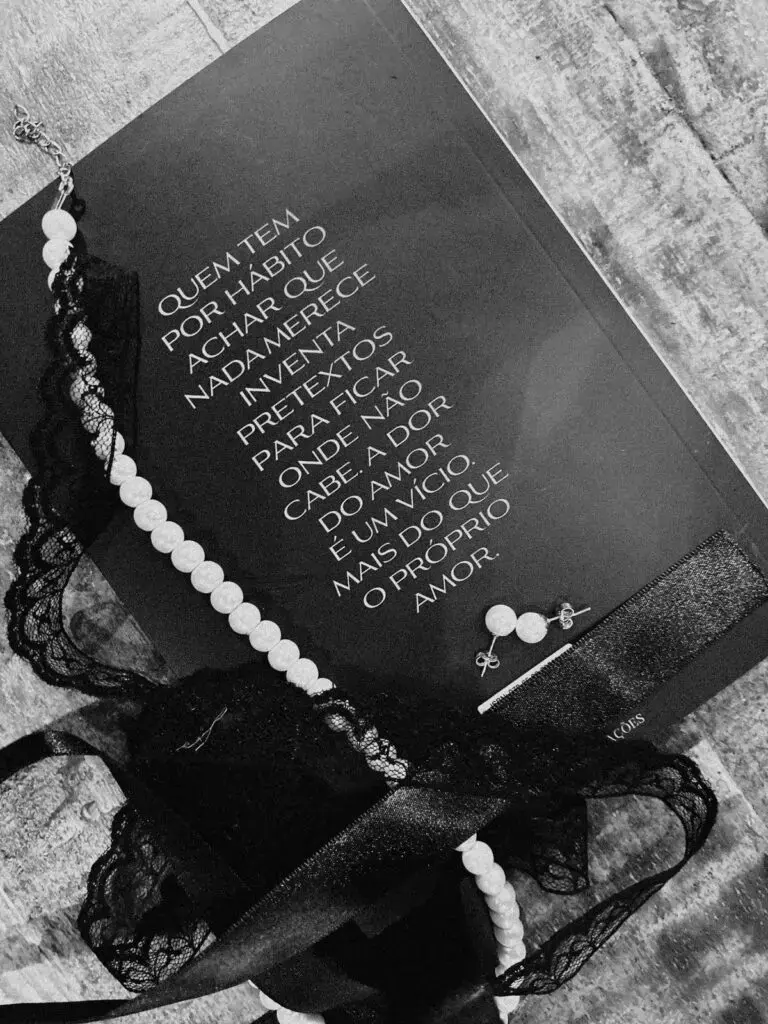 QUEM TEM
POR HÁBITO
ACHAR QUE
NADA MERECE
INVENTA
PRETEXTOS
PARA FICAR
ONDE NÃO
CABE. A DOR
DO AMOR
É UM VÍCIO.
MAIS DO QUE
O PRÓPRIO
AMOR.
AÇÕES